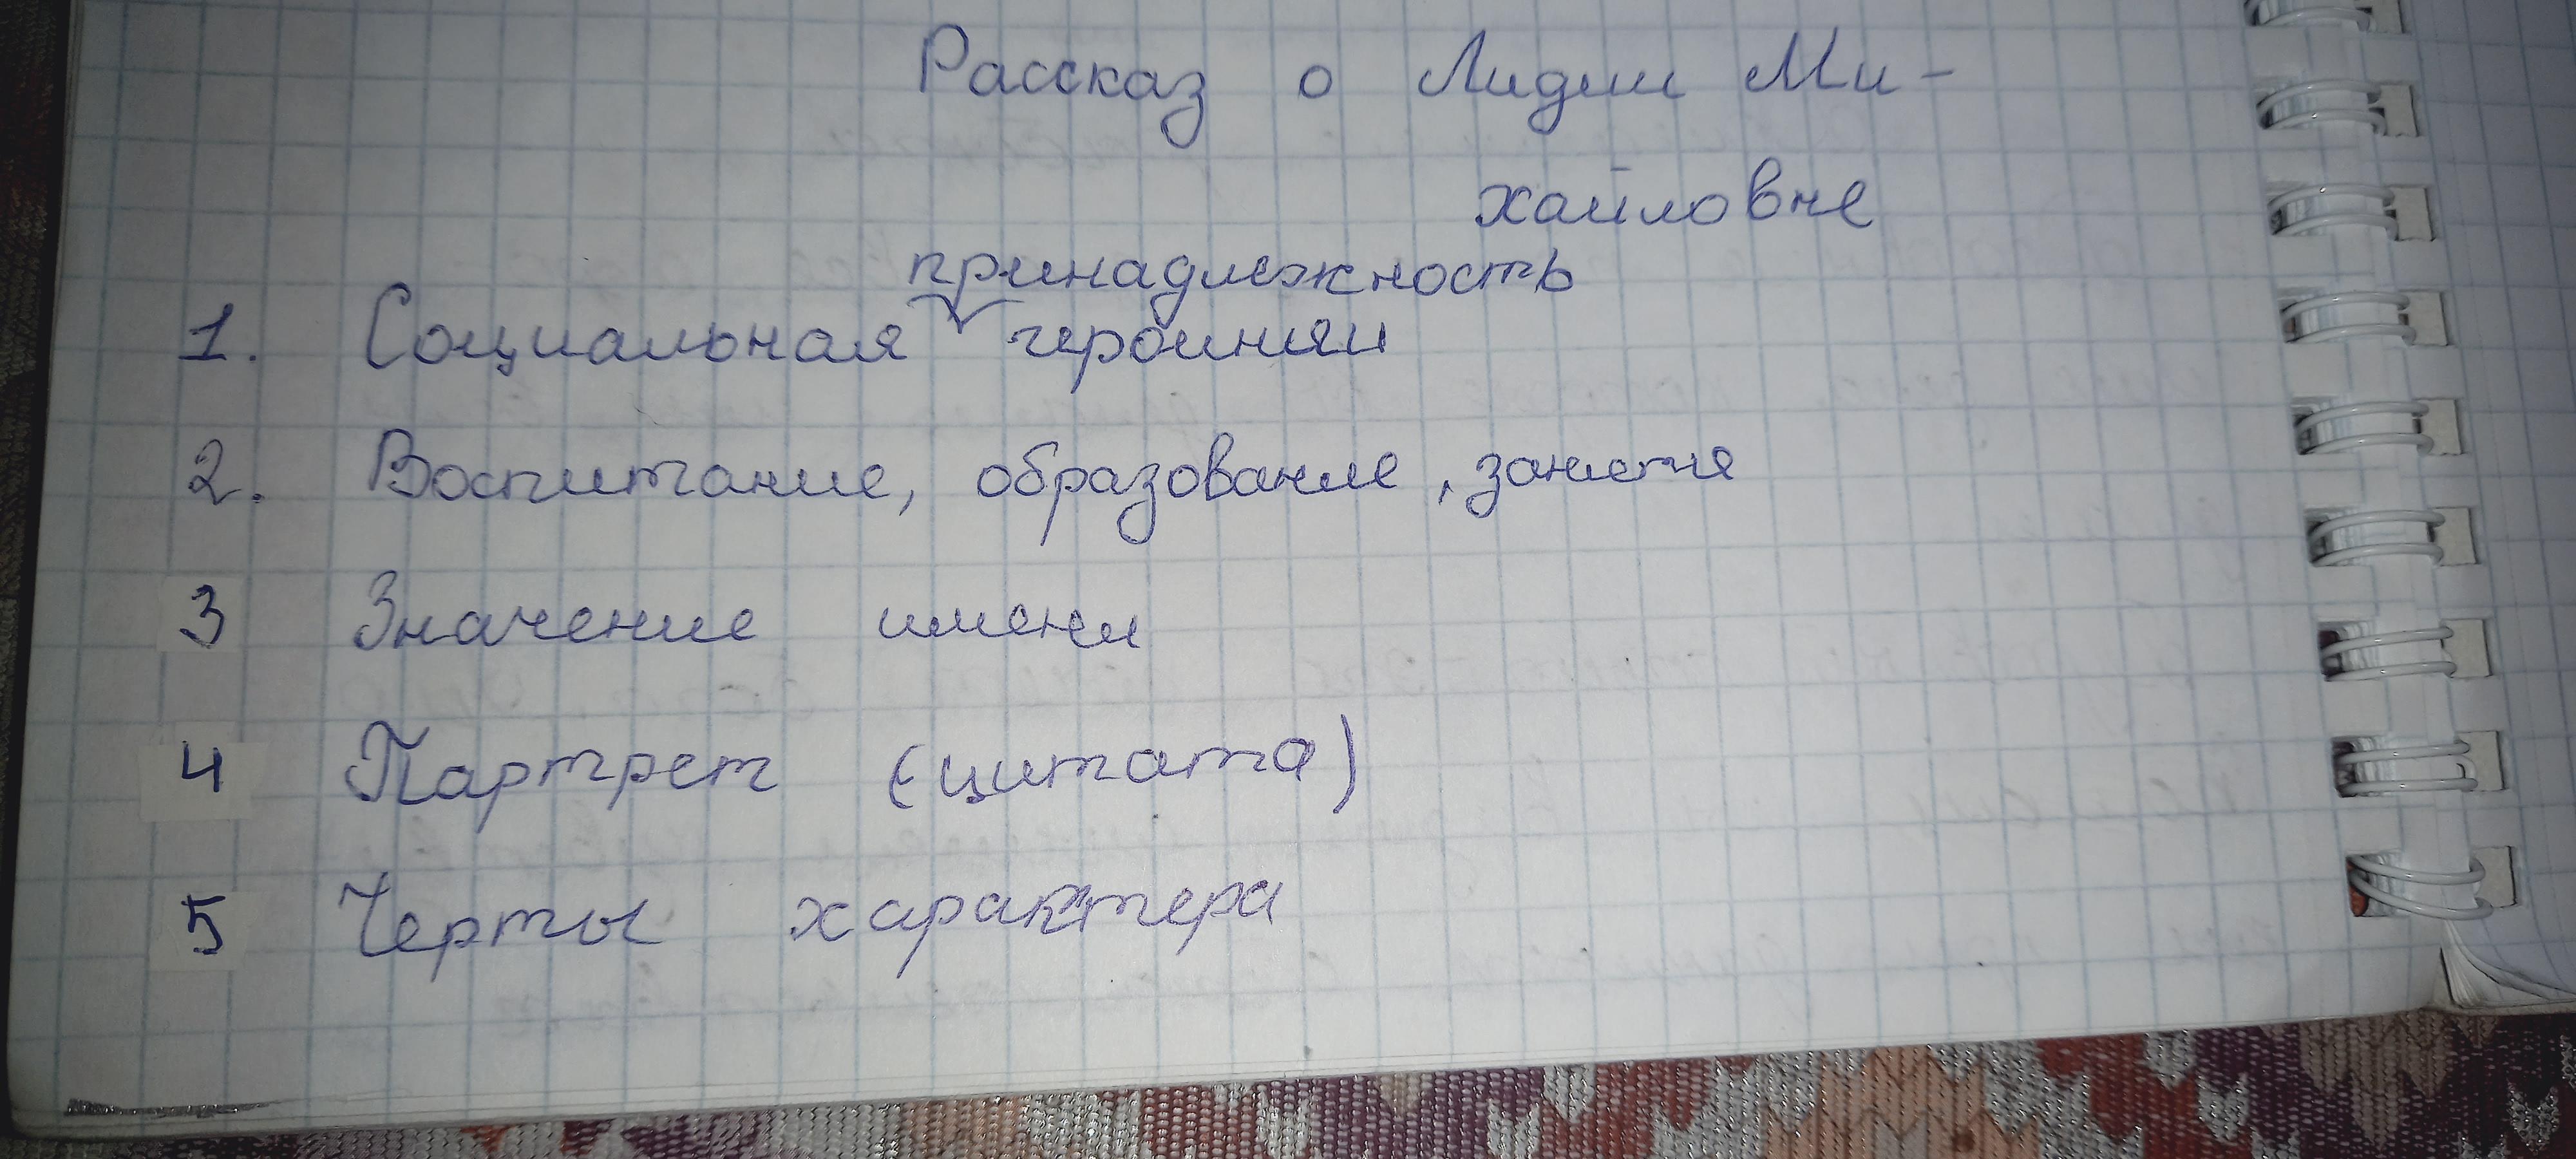 Рассказ о Лидии Ми-
хайловне
принадлежность
1. Социальная героиняи
2. Воспитание, образование, занятия
3 Значение имени
4 Партрет (цитата)
5 Черты характера